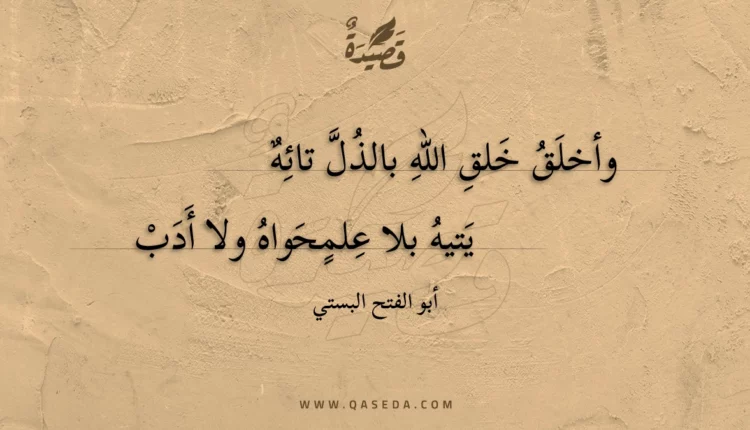 قَصِيْدَةٌ
وأخلَقُ خَلقِ اللهِ بالذُلَّ تائِهٌ
يَتيهُ بلا عِلمٍحَواهُ ولا أَدَبْ
أبو الفتح البستي
WWW.QASEDA.COM